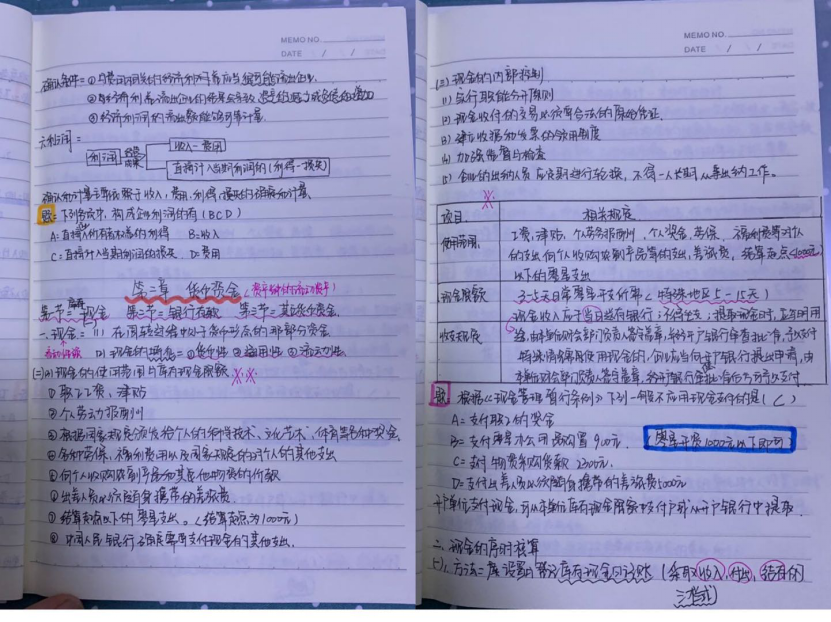 MEMO NO.
DATE / /
确认条件=①与费用相关的经济利益应当很可能流出企业.
②经济利益流出企业的结果会导致资产的减少或负债的增加
③经济利益的流出数能够可靠计量.
六利润=
利润
收入-费用
直接计入当期利润的(利得-损失)
确认和计量主要依赖于收入,费用.利得,损失的确认和计量.
题:下列各项中,构成企业利润的有(BCD)
A:直接计入所有者权益的利得 B:收入
C:直接计入当期利润的损失 D:费用
第二章 货币资金
第一节=现金 第二节=银行存款 第三节=其他货币资金.
一.现金=(1)在周转过程中处于货币形态的那部分资金.
(2)现金的特点=①货币性 ②通用性 ③流动性.
(二)现金的使用范围与库存现金限额
①职工工资、津贴
②个人劳动报酬
③根据国家规定颁发给个人的科学技术、文化艺术、体育等各种奖金.
④各种劳保、福利费用以及国家规定的对个人的其他支出
⑤向个人收购农副产品和其他物资的价款
⑥出差人员必须随身携带的差旅费
⑦结算起点以下的零星支出.(结算起点为1000元)
⑧中国人民银行确定需要支付现金的其他支出.
MEMO NO.
DATE / /
(三)现金的内部控制
(1)实行职能分开原则
(2)现金收付的交易必须有合法的原始凭证.
(3)建立收据和发票的领用制度
(4)加强监督与检查
(5)企业的出纳人员应定期进行轮换,不得一人长期从事出纳工作.
项目 相关规定
使用范围 工资、津贴,个人劳务报酬,个人奖金,劳保、福利费等对个人
的支出,向个人收购农副产品等的支出,差旅费,结算起点(1000元)
以下的零星支出
现金限额 3-5天日常零星开支所需(特殊地区5-15天)
收支规定 现金收入应于当日送存银行;不得坐支;提取现金时,应写明用
途,由本单位财会部门负责人签字盖章,并经开户银行审查批准,予以支付
特殊情况需使用现金的,
本单位财会部门负责人签字盖章,经开户银行审批准后方可予以支付
题:根据《现金管理暂行条例》下列一般不应用现金支付的是(C)
A=支付职工的奖金
B=支付零星办公用品购置900元. (零星开费1000元以下即可)
C=支付物资采购货款2300元.
D=支付出差人员必须随身携带的差旅费5000元
开户单位支付现金,可从本单位库存现金限额中支付或从开户银行中提取.
二.现金的序时核算
(一).方法=应设置"现金日记账"(采取收入,付出,结存的
三栏式)